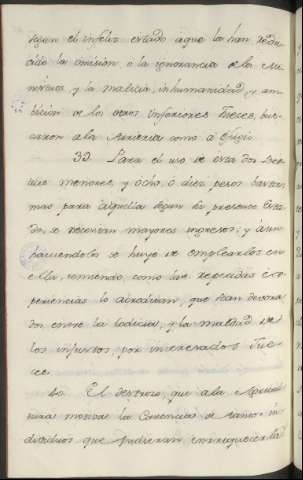 segun el infeliz estado aque la han redu
cido la omision, o la ignorancia de los Mi
nistros, y la malicia, inhumanidad, y am
bicion de los otros inferiores Jueces, bus
caron ala Arrieria como a
39. Para el uso de esta dos Bes
tias menores, y ocho, ó diez pesos bastan
mas para aquella segun su presente Esta
do, se necesitan mayores ingresos; y aun
haciendolos se huye de emplearlos en
ella, temiendo, como las repetidas ex
periencias lo acreditan, que sean devora
dos entre la codicia, y la maldad de
los injustos, por interesados Jue
ces.
40. El destrozo, que ala Agricul
tura motiva la Carencia de tantos in
dividuos que pudieran enrriquecerla